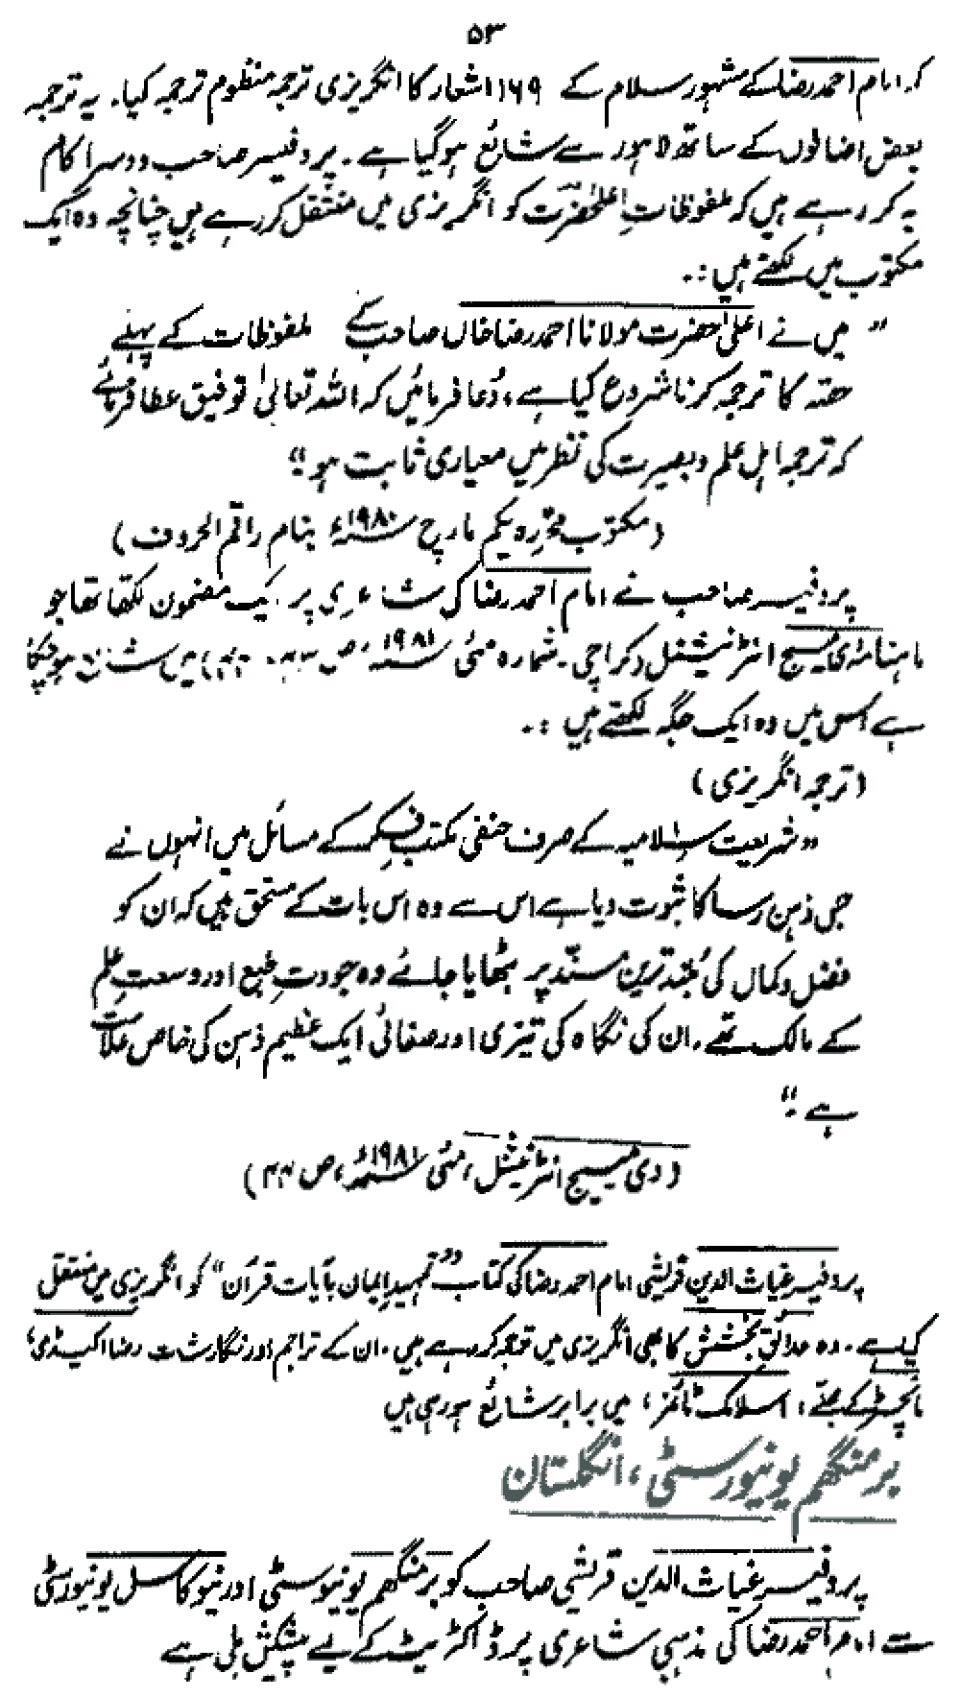 ۵۳
کہ امام احمد رضا کے مشہور سلام کے ۱۶۹ اشعار کا انگریزی ترجمہ منظوم ترجمہ کیا۔ یہ ترجمہ
بعض اضافوں کے ساتھ لاہور سے شائع ہوگیا ہے۔ پروفیسر صاحب دوسرا کام
یہ کر رہے ہیں کہ ملفوظاتِ اعلیٰحضرت کو انگریزی میں منتقل کر رہے ہیں چنانچہ وہ ایک
مکتوب میں لکھتے ہیں :۔
”میں نے اعلیٰحضرت مولانا احمد رضا خاں صاحب کے ملفوظات کے پہلے
حصّہ کا ترجمہ کرنا شروع کیا ہے، دُعا فرمائیں کہ اللہ تعالیٰ توفیق عطا فرمائے
کہ ترجمہ اہل علم و بصیرت کی نظر میں معیاری ثابت ہو“
(مکتوب محرّرہ یکم مارچ ۱۹۸۰ء بنام راقم الحروف)
پروفیسر صاحب نے امام احمد رضا کی شاعری پر ایک مضمون لکھا تھا جو
ماہنامہ دی میسج انٹرنیشنل (کراچی۔ شمارہ مئی ۱۹۸۱ء ص میں شائع ہوچکا
ہے اس میں وہ ایک جگہ لکھتے ہیں :۔
(ترجمہ انگریزی)
”شریعت اسلامیہ کے صرف حنفی مکتب فکر کے مسائل میں انہوں نے
جس ذہن رسا کا ثبوت دیا ہے اس سے وہ اس بات کے مستحق ہیں کہ ان کو
فضل و کمال کی بلند ترین مسند پر بٹھایا جائے وہ جودتِ طبع اور وسعتِ علم
کے مالک تھے۔ ان کی نگاہ کی تیزی اور صفائی ایک عظیم ذہن کی خاص علامت
ہے۔“
(دی میسج انٹرنیشنل، مئی ۱۹۸۱ء، ص ۴۴)
پروفیسر غیاث الدین قریشی امام احمد رضا کی کتاب ”تمہید ایمان بآیات قرآن“ کو انگریزی میں منتقل
کیا ہے۔ وہ حدائق بخشش کا بھی انگریزی میں ترجمہ کر رہے ہیں۔ ان کے تراجم اور نگارشات رضا اکیڈمی،
مانچسٹر کے مجلّے، اسلامک ٹائمز، میں برابر شائع ہو رہی ہیں
برمنگھم یونیورسٹی، انگلستان
پروفیسر غیاث الدین قریشی صاحب کو برمنگھم یونیورسٹی اور نیوکاسل یونیورسٹی
سے امام احمد رضا کی مذہبی شاعری پر ڈاکٹریٹ کے لیے پیشکش ملی ہے